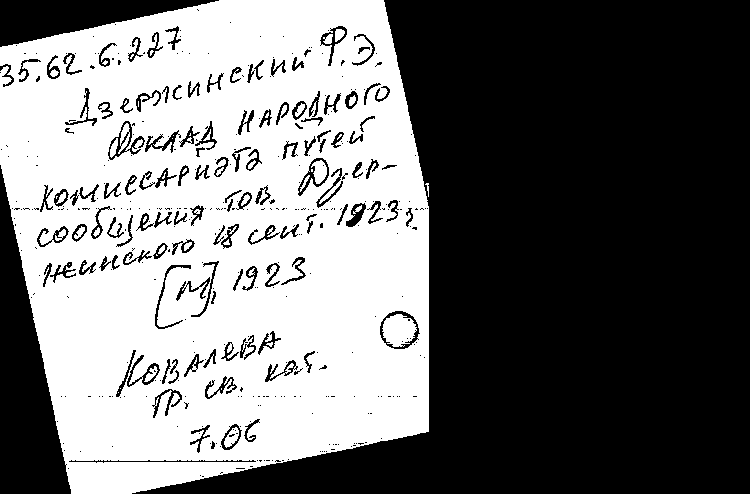 35.62.6.227
Дзержинский Ф.Э.
Доклад народного
комиссариата путей
сообщения тов. Дзер-
жинского 18 сент. 1923 г.
[М], 1923
Ковалева
гр. св. кат.
7.06